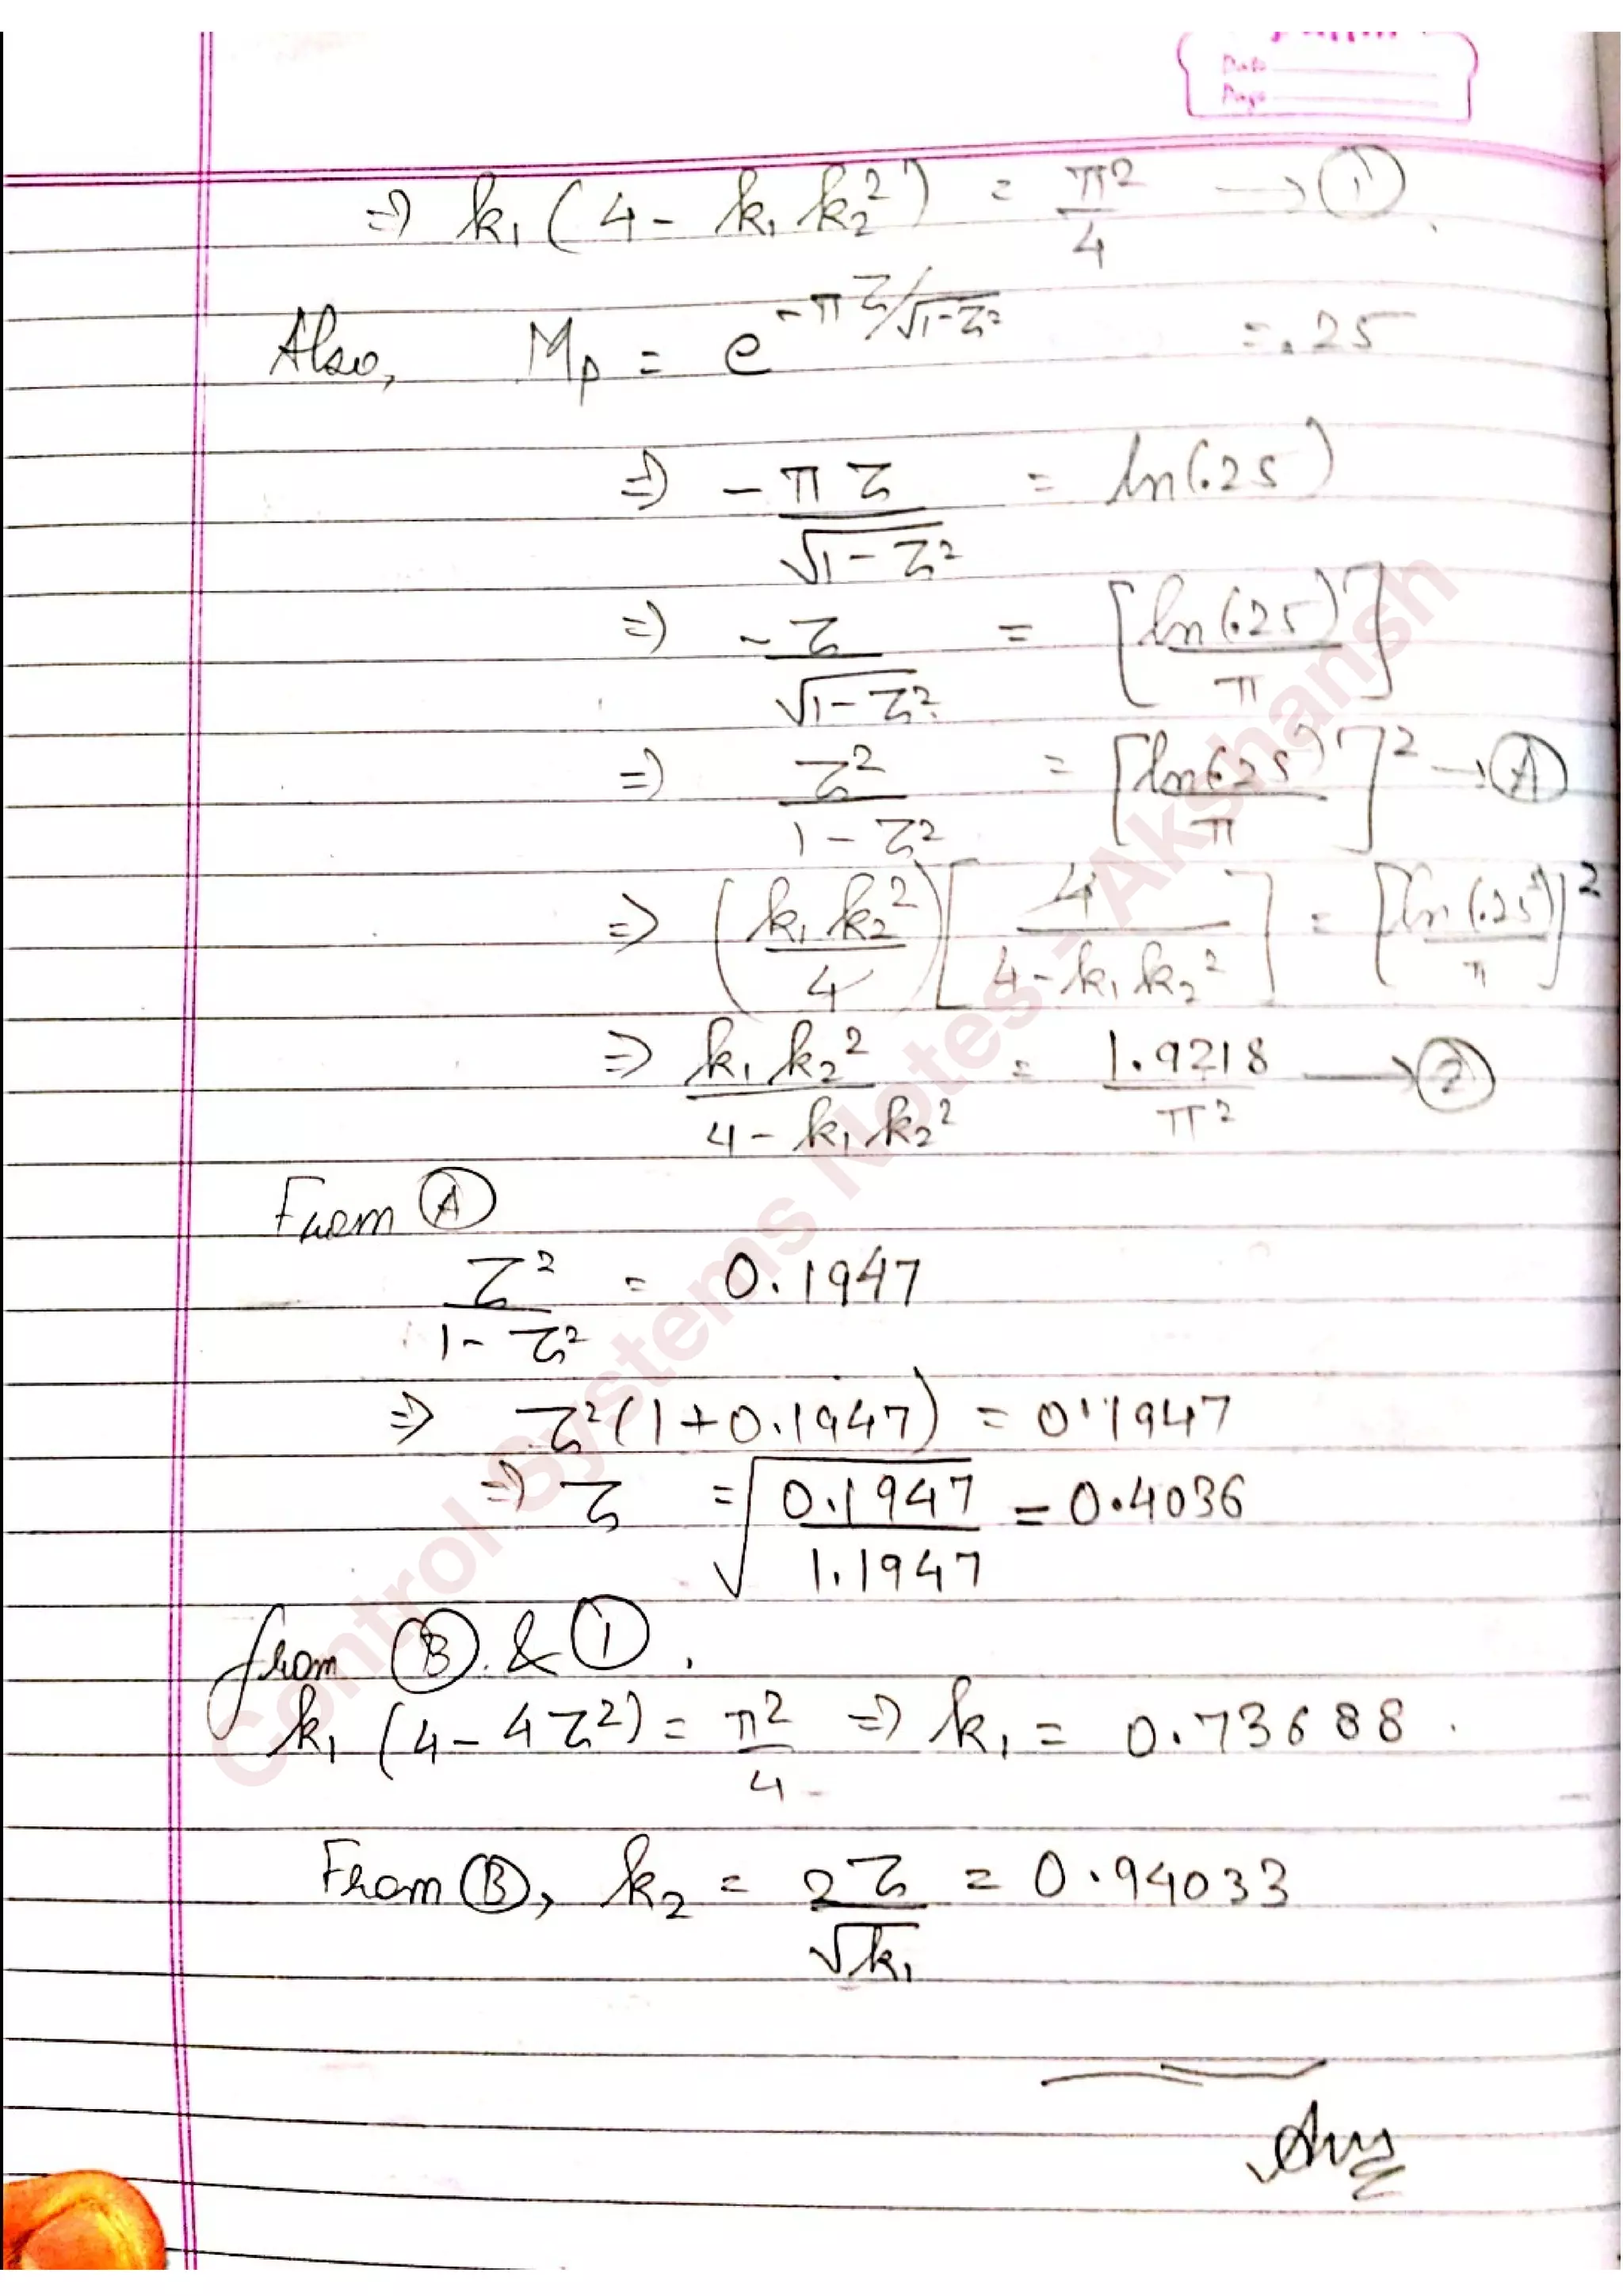 Date
Page
=> k₁ ( 4 - k₁ k₂² ) = π²/4 → ①
Also, Mp = e^(-πζ/√1-ζ²) = .25
=> -πζ/√1-ζ² = ln(.25)
=> -ζ/√1-ζ² = [ln(.25)/π]
=> ζ²/1-ζ² = [ln(.25)/π]² → Ⓐ
=> (k₁ k₂²/4) [4/4-k₁ k₂²] = [ln(.25)/π]²
=> k₁ k₂²/4-k₁ k₂² = 1.9218/π² → ②
From Ⓐ
ζ²/1-ζ² = 0.1947
=> ζ²(1+0.1947) = 0.1947
=> ζ = √0.1947/1.1947 = 0.4036
from Ⓑ & ①.
k₁ (4-4ζ²) = π²/4 => k₁ = 0.73688.
From Ⓑ, k₂ = 2ζ/√k₁ = 0.94033
Ans
Control Systems Notes - Akshansh